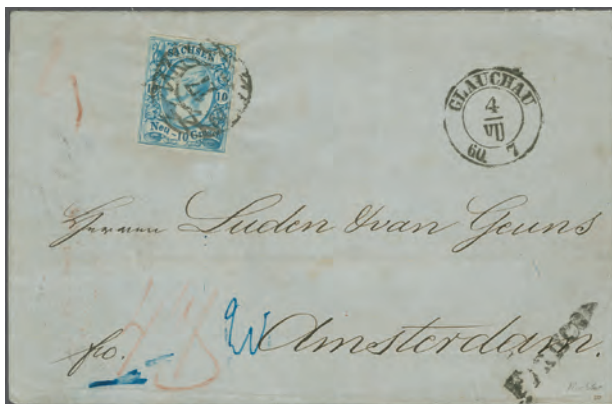 SACHSEN
10
Neu-10Gr.
GLAUCHAU
4
VII
60. 7
Herren Luden & van Geuns
fro. Amsterdam.
FRANCO